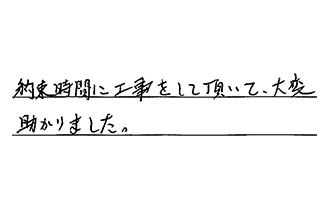 約束時間に工事をして頂いて、大変
助かりました。